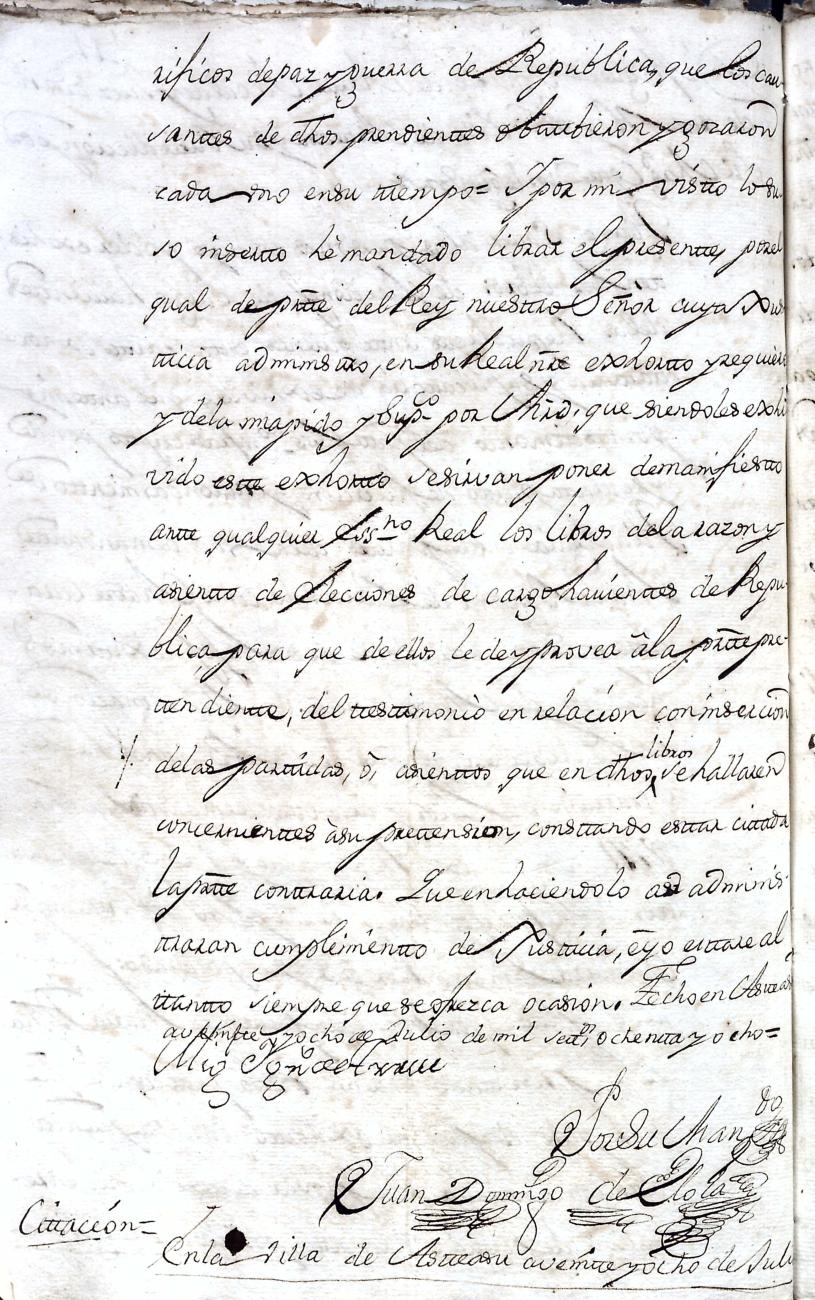 rificos de paz y guerra de Republica, que los cau-
santtes de dhos prendienttes obttubieron y gozaron
cada uno en su ttiempo= Y por mi vistto lo su-
so insertto hè mandado libràr el presentte, por el
qual de prtte del Rey nuèsttro Señòr cuya Jus-
tticia administtro, en su Real nre exhortto y requiero
y dela mia pido y Supco por Vmrd, que siendoles exhi-
vido estte exhortto se sirvan poner de manifiestto
antte qualquier Essno Real los libros dela razon y
asientto de Elecciones de cargohavienttes de Repu-
blica, para que de ellos le de y provea à la prtte pre-
ttendientte, del ttesttimonio en relacion con insercion
delas parttidas, ò, asienttos que en dhos libros se hallaren
concernienttes à su prettension, consttando esttar cittada
la prtte conttraria. Que en haciendolo asi adminis-
ttraran cumplimientto de Justticia, è yo esttare al
ttantto siempre que se ofrezca ocasion. Fecho en Astteasu
a veintte y ocho de Julio de mil settos ochentta y ocho=
Mig Ygn de
Por su Mando
Juan Domingo de Elola
Cittacion=
En la Villa de Astteasu a veintte y ocho de Juli